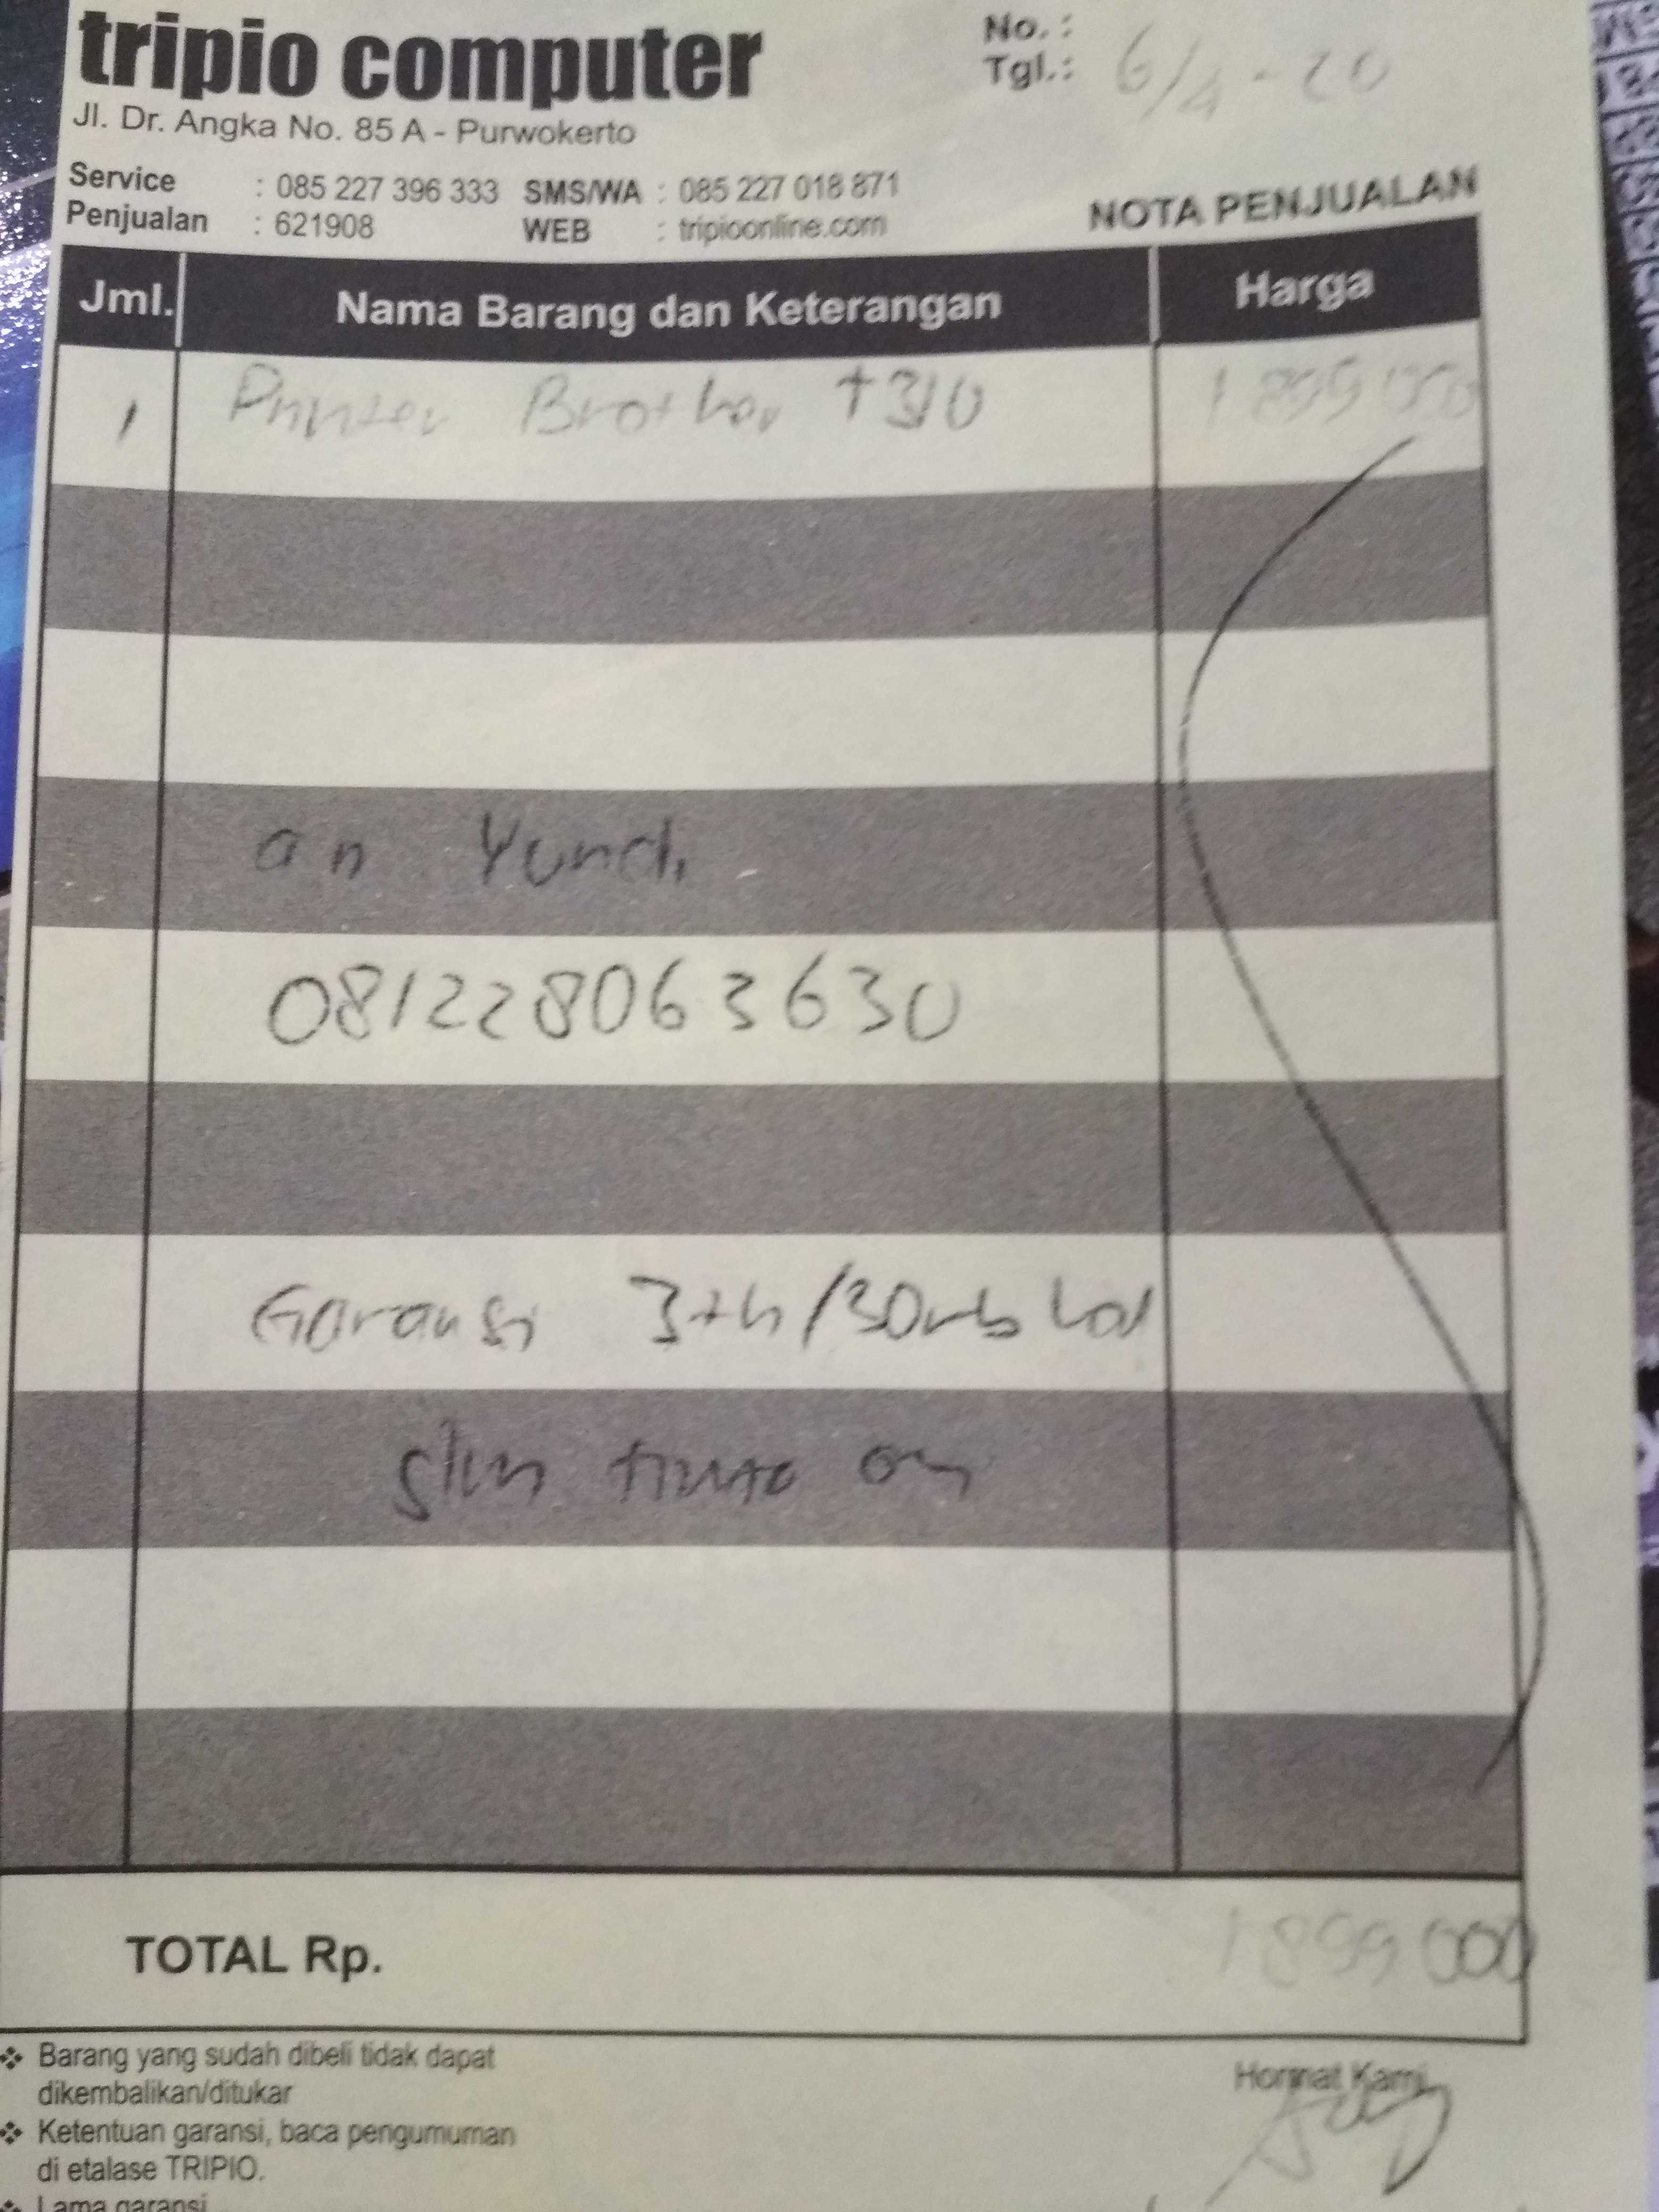 tripio computer
No. :
Tgl.: 6/4-20
Jl. Dr. Angka No. 85 A - Purwokerto
Service : 085 227 396 333 SMS/WA : 085 227 018 871
Penjualan : 621908 WEB : tripioonline.com
NOTA PENJUALAN
Jml. Nama Barang dan Keterangan Harga
1 Printer Brother t310 1899000
an Yundi
081228063630
Garansi 3th/30rb
TOTAL Rp. 1899000
❖ Barang yang sudah dibeli tidak dapat
dikembalikan/ditukar
Hormat Kami
❖ Ketentuan garansi, baca pengumuman
di etalase TRIPIO.
❖ Lama garansi